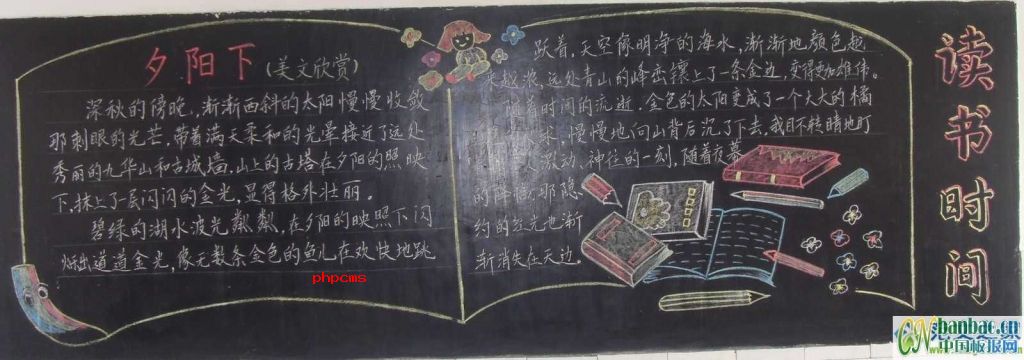 夕阳下(美文欣赏)
深秋的傍晚,渐渐西斜的太阳慢慢收敛
那刺眼的光芒,带着满天柔和的光晕接近了远处
秀丽的九华山和古城墙,山上的古塔在夕阳的照映
下,抹上了一层闪闪的金光,显得格外壮丽。
碧绿的湖水波光粼粼,在夕阳的映照下闪
出道道金光,像无数条金色的鱼儿在欢快地跳
phpcms
跃着,天空像明净的海水,渐渐地颜色越
来越浓,远处青山的峰峦镶上了一条金边,变得更加雄伟。
随着时间的流逝,金色的太阳变成了一个大大的橘
球,慢慢地向山背后沉了下去,我目不转睛地盯
激动、神往的一刻,随着夜幕
的降临,那隐
约的光也渐
渐消失在天边。
读书时间
banbao.cn
中国板报网